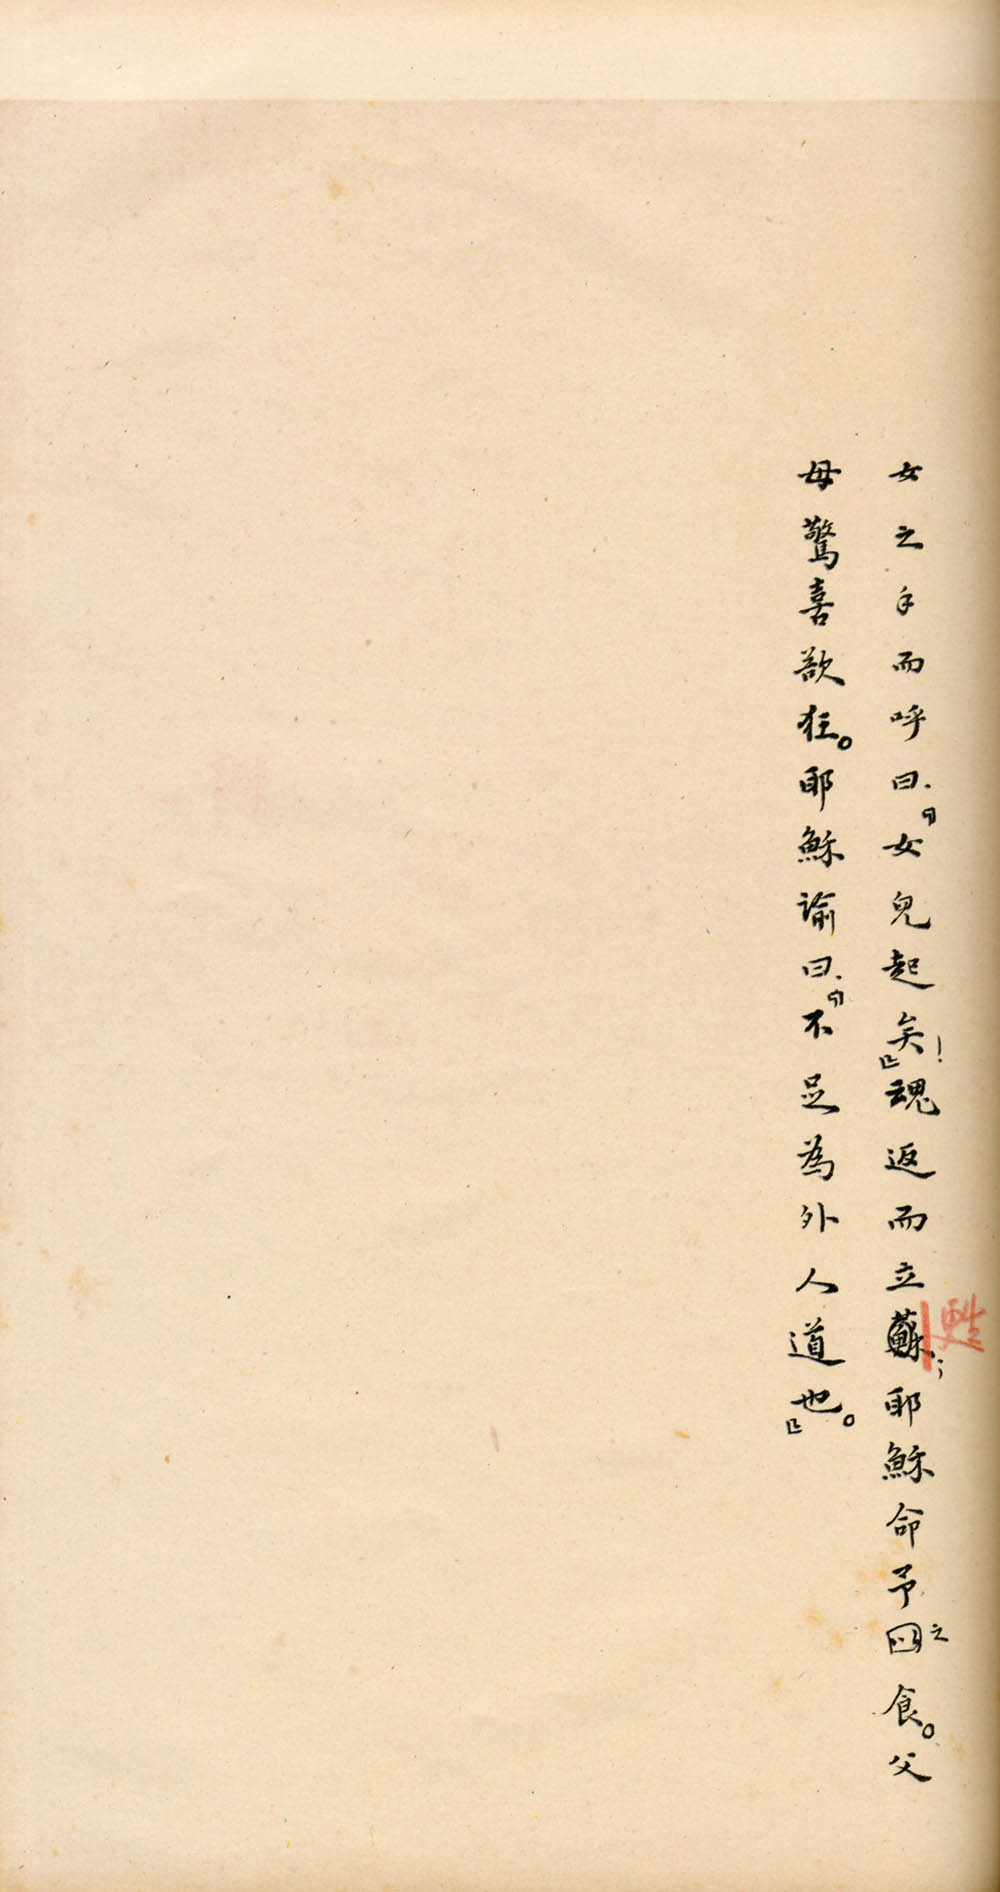 女之手而呼曰．「女兒起矣！」魂返而立蘇；耶穌命予以之食。父
甦
母驚喜欲狂。耶穌諭曰．「不足為外人道也。」